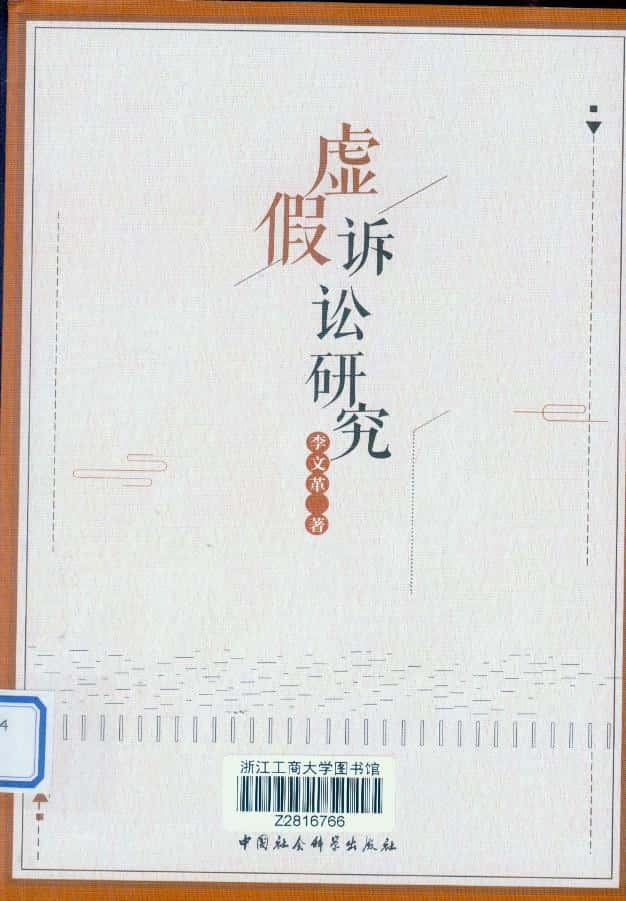 虚假诉讼研究
李文革 著
4
浙江工商大学图书馆
Z2816766
中国社会科学出版社